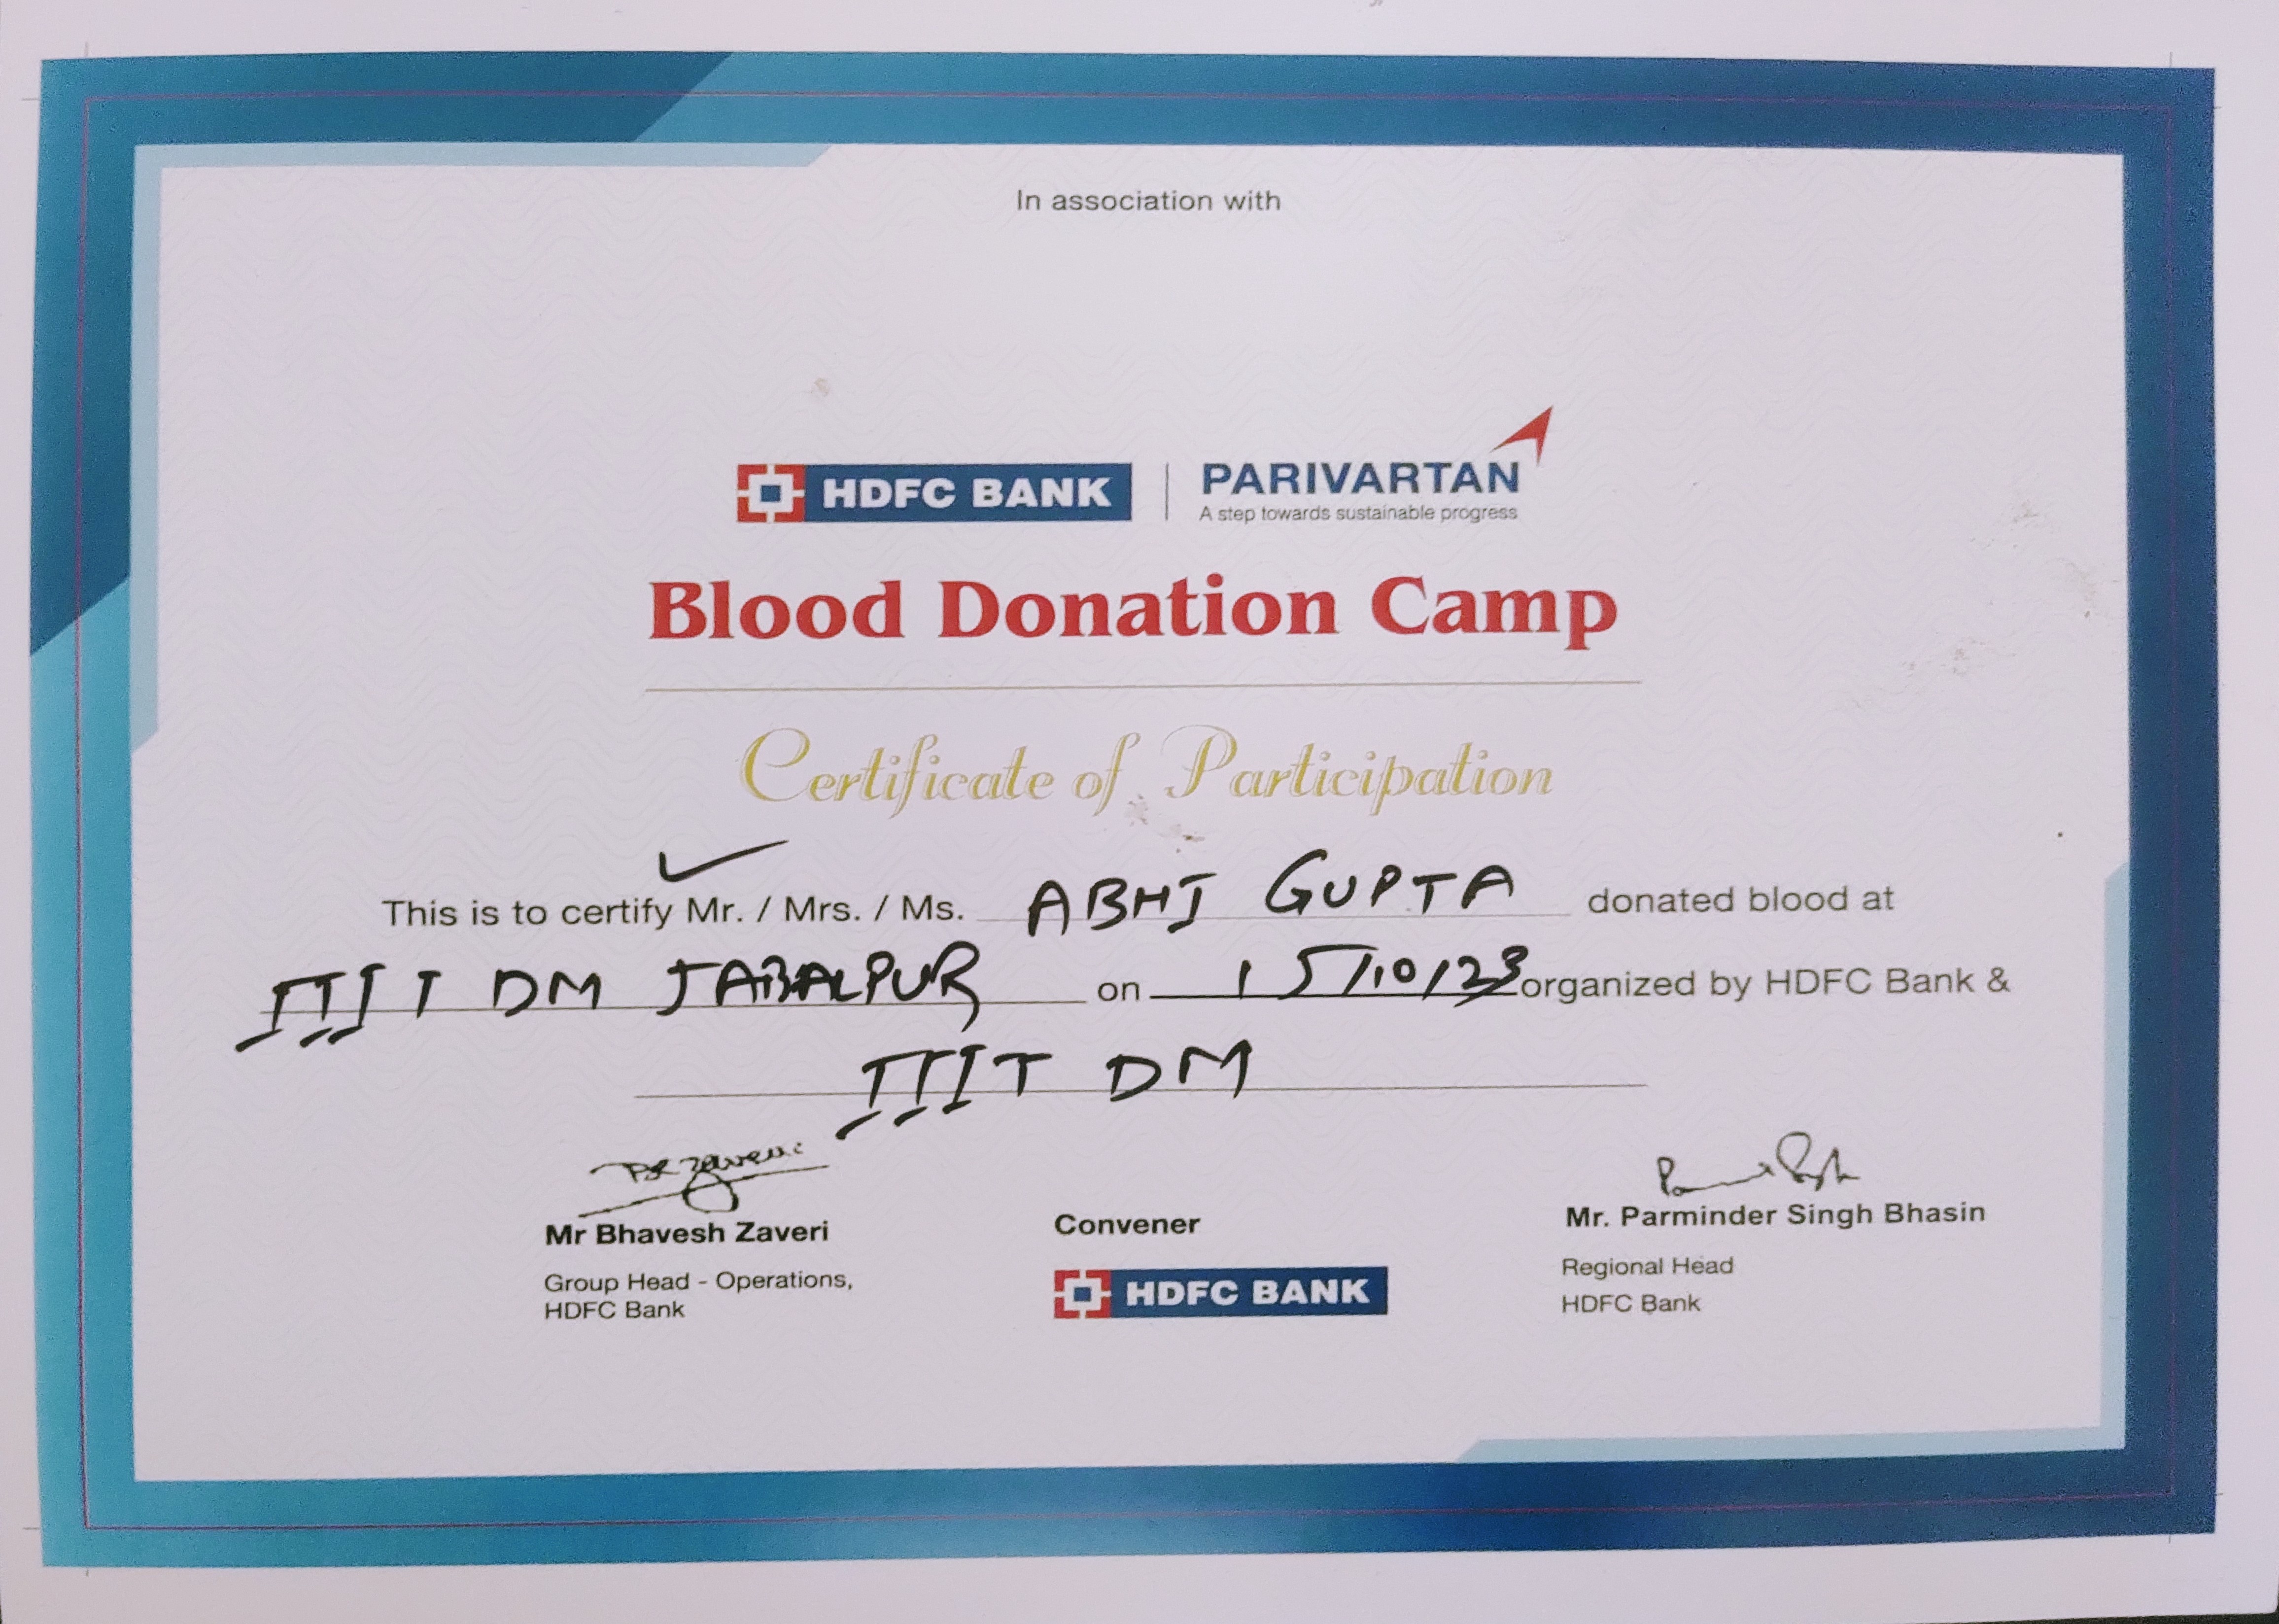 In association with
HDFC BANK | PARIVARTAN
A step towards sustainable progress
Blood Donation Camp
Certificate of Participation
This is to certify Mr. / Mrs. / Ms. ABHI GUPTA donated blood at
IIIT DM JABALPUR on 15/10/23 organized by HDFC Bank &
IIIT DM
Mr Bhavesh Zaveri
Group Head - Operations,
HDFC Bank
Convener
HDFC BANK
Mr. Parminder Singh Bhasin
Regional Head
HDFC Bank